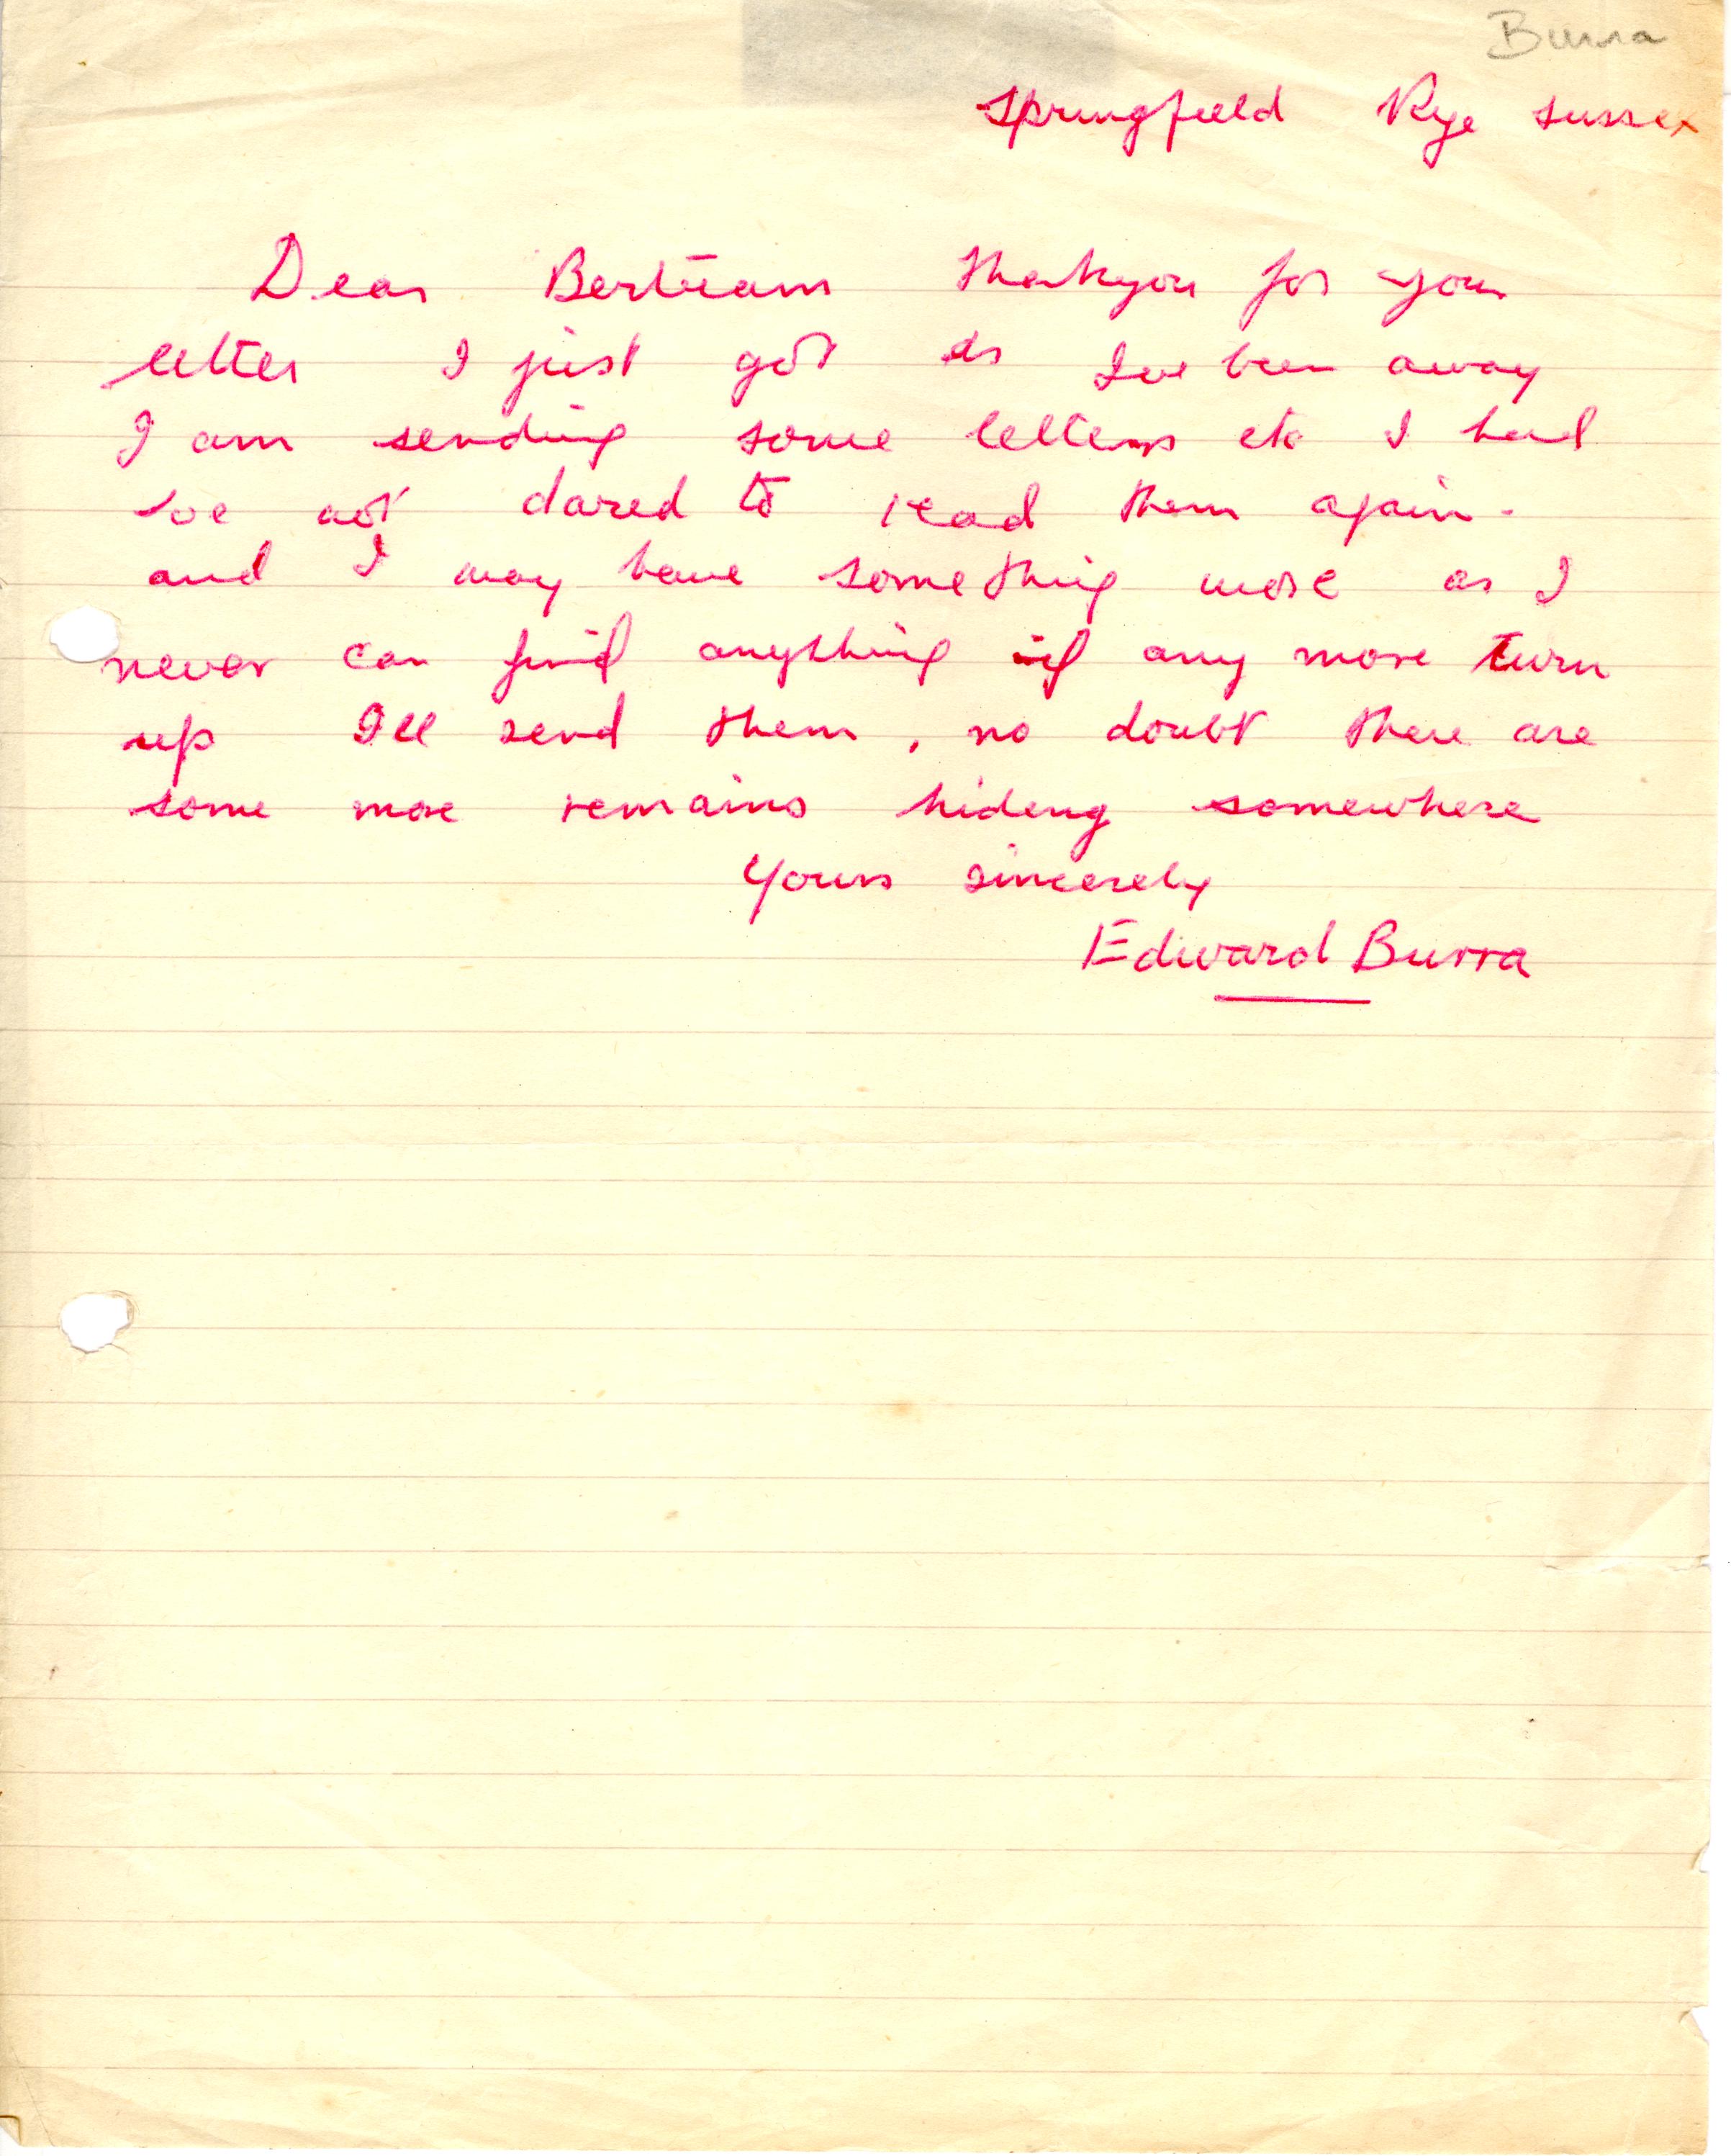 Burra
Springfield Rye Sussex
Dear Bertram thankyou for your
letter I just got as Ive been away
I am sending some letters etc I had
Ive not dared to read them again.
and I may have something more as I
never can find anything if any more turn
up I'll send them, no doubt there are
some more remains hiding somewhere
Yours sincerely
Edward Burra